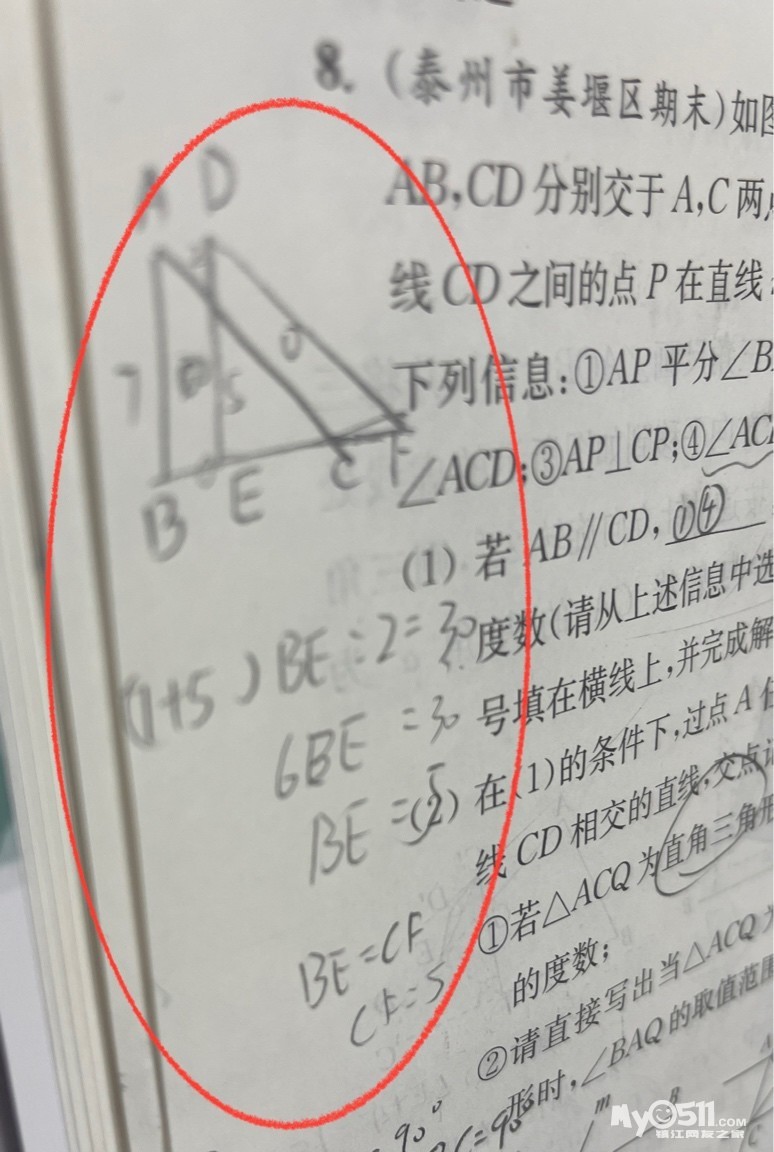 8. (泰州市姜堰区期末)如图
AB,CD 分别交于 A,C 两点
线 CD 之间的点 P 在直线
下列信息:①AP 平分∠BA
∠ACD;③AP⊥CP;④∠AC
(1) 若 AB∥CD, ①④
度数(请从上述信息中选
号填在横线上,并完成解
(2) 在(1)的条件下,过点 A 作
线 CD 相交的直线,交点记
①若△ACQ 为直角三角形
的度数;
②请直接写出当△ACQ 为
形时,∠BAQ 的取值范围
A D
7 5
B E C F
BE ÷ 2 = 30
6BE = 30
BE = 5
BE = CF
CF = 5
90°
C = 90°
m B
A
C
My0511.COM
镇江网友之家